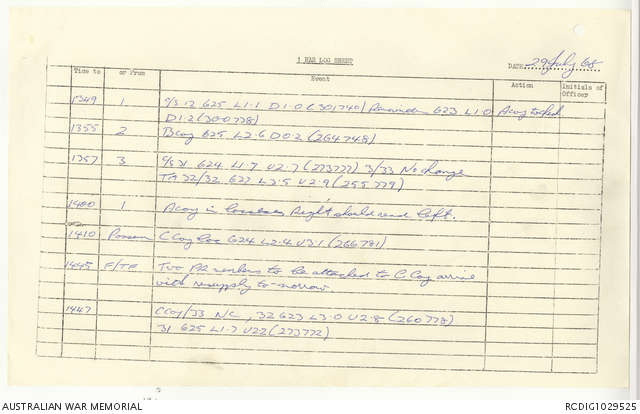 1 RAR LOG SHEET
DATE 29 July 68
Time to or From Event Action Initials of Officer
1349 1 C/S 12 625 L1.1 D1.0 (301740) Remainder 623 L1.0 Acoy
D1.2 (300738)
1355 2 Bcoy 625 L2.6 D0.2 (264748)
1357 3 C/S 31 624 L1.7 U2.7 (273777) 3/33 No change
TA 32/32 623 L3.5 U2.9 (255779)
1400 1 Acoy in Right should read left.
1410 C Coy loc 624 L2.4 U3.1 (266781)
1445 F/TF Two to be attached to C Coy arrive
with resupply to-morrow
1447 CCoy/33 N/C, 32 623 L3.0 U2.8 (260778)
31 625 L1.7 U22 (273772)
AUSTRALIAN WAR MEMORIAL
RCDIG1029525